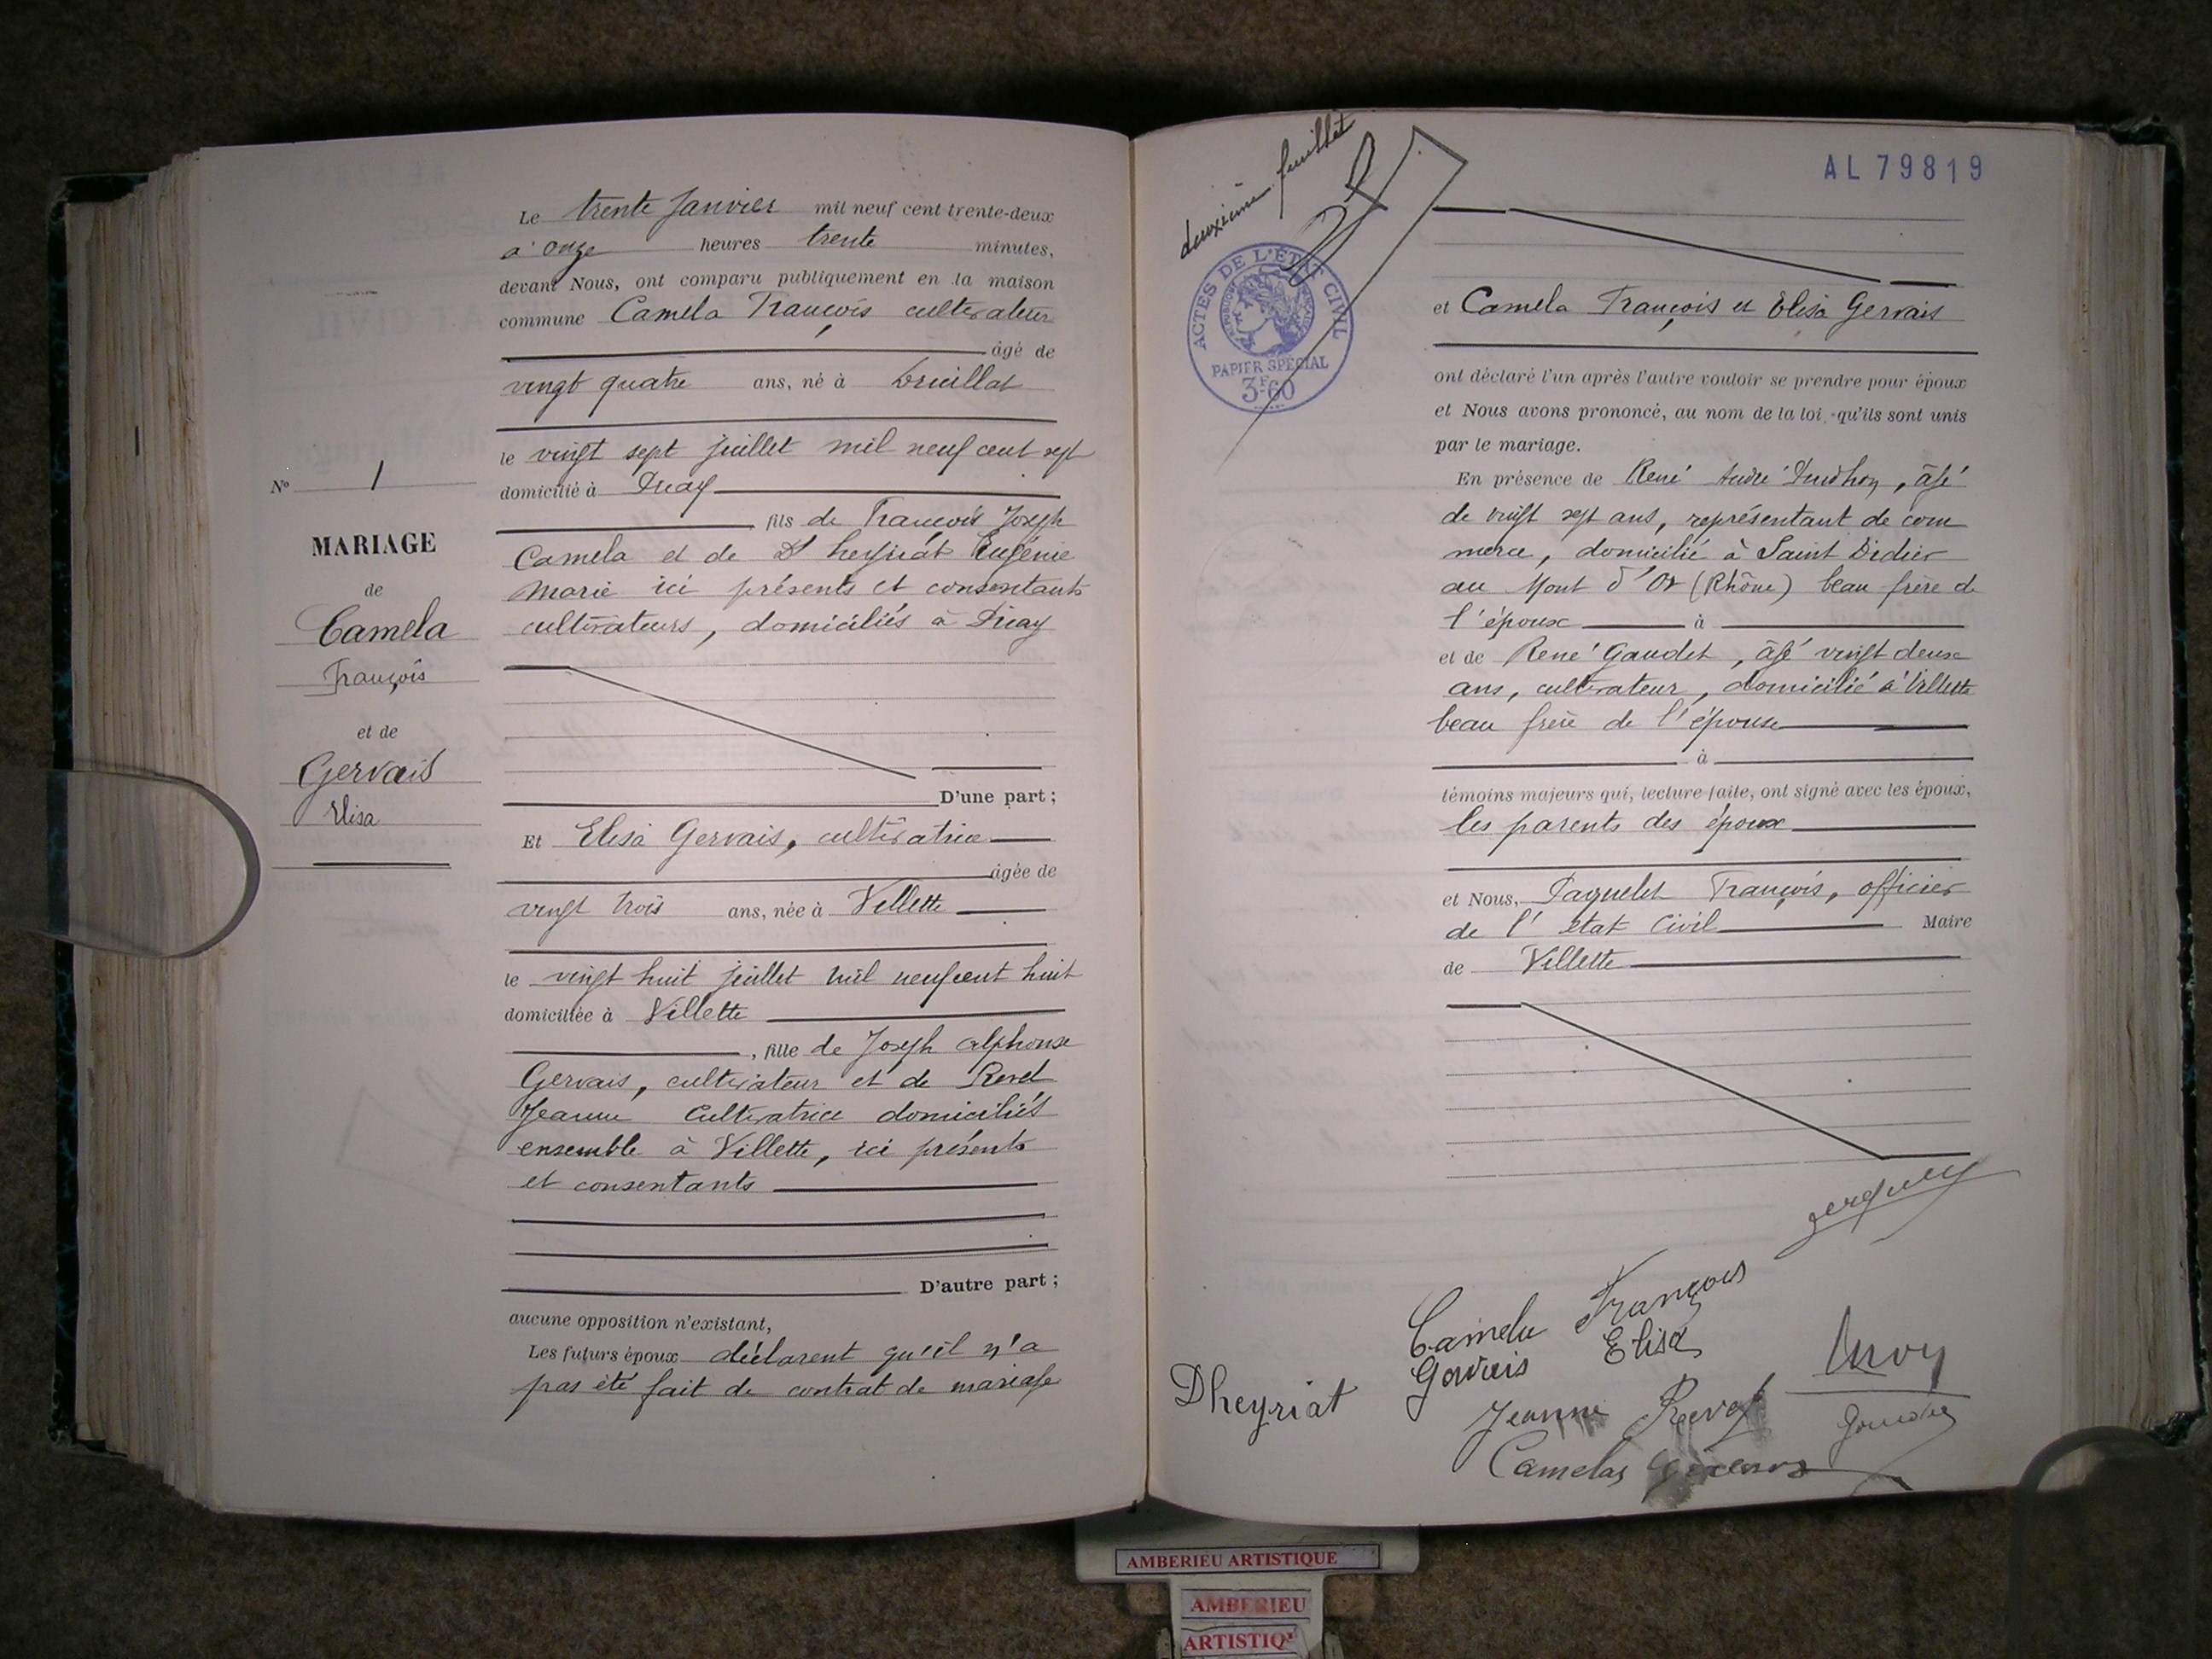 Le trente Janvier mil neuf cent trente-deux
à onze heures trente minutes,
devant Nous, ont comparu publiquement en la maison
commune Camela François cultivateur
âgé de
vingt quatre ans, né à Druillat
le vingt sept juillet mil neuf cent sept
domicilié à Priay
fils de François Joseph
Camela et de Dheyriat Eugénie
Marie ici présents et consentants
cultivateurs, domiciliés à Priay
D'une part ;
Et Elisa Gervais, cultivatrice
âgée de
vingt trois ans, née à Villette
le vingt huit juillet mil neuf cent huit
domiciliée à Villette
, fille de Joseph Alphonse
Gervais, cultivateur et de Revel
Jeanne Cultivatrice domiciliés
ensemble à Villette, ici présents
et consentants
D'autre part ;
aucune opposition n'existant,
Les futurs époux déclarent qu'il n'a
pas été fait de contrat de mariage
No 1
MARIAGE
de
Camela
François
et de
Gervais
Elisa
deuxième feuillet
AL 79819
ACTES DE L'ÉTAT CIVIL
PAPIER SPÉCIAL
3F.60
et Camela François et Elisa Gervais
ont déclaré l'un après l'autre vouloir se prendre pour époux
et Nous avons prononcé, au nom de la loi, qu'ils sont unis
par le mariage.
En présence de René André, âgé
de vingt sept ans, représentant de com
merce, domicilié à Saint Didier
au Mont d'Or (Rhône) beau frère de
l'époux à
et de René Gaudet, âgé vingt deux
ans, cultivateur, domicilié à Villette
beau frère de l'épouse
à
témoins majeurs qui, lecture faite, ont signé avec les époux,
les parents des époux
et Nous, Paquelet François, officier
de l'état Civil Maire
de Villette
Camela François
Gervais Elisa
Dheyriat
Jeanne Revel
Camelas
AMBERIEU ARTISTIQUE
AMBERIEU
ARTISTIQ